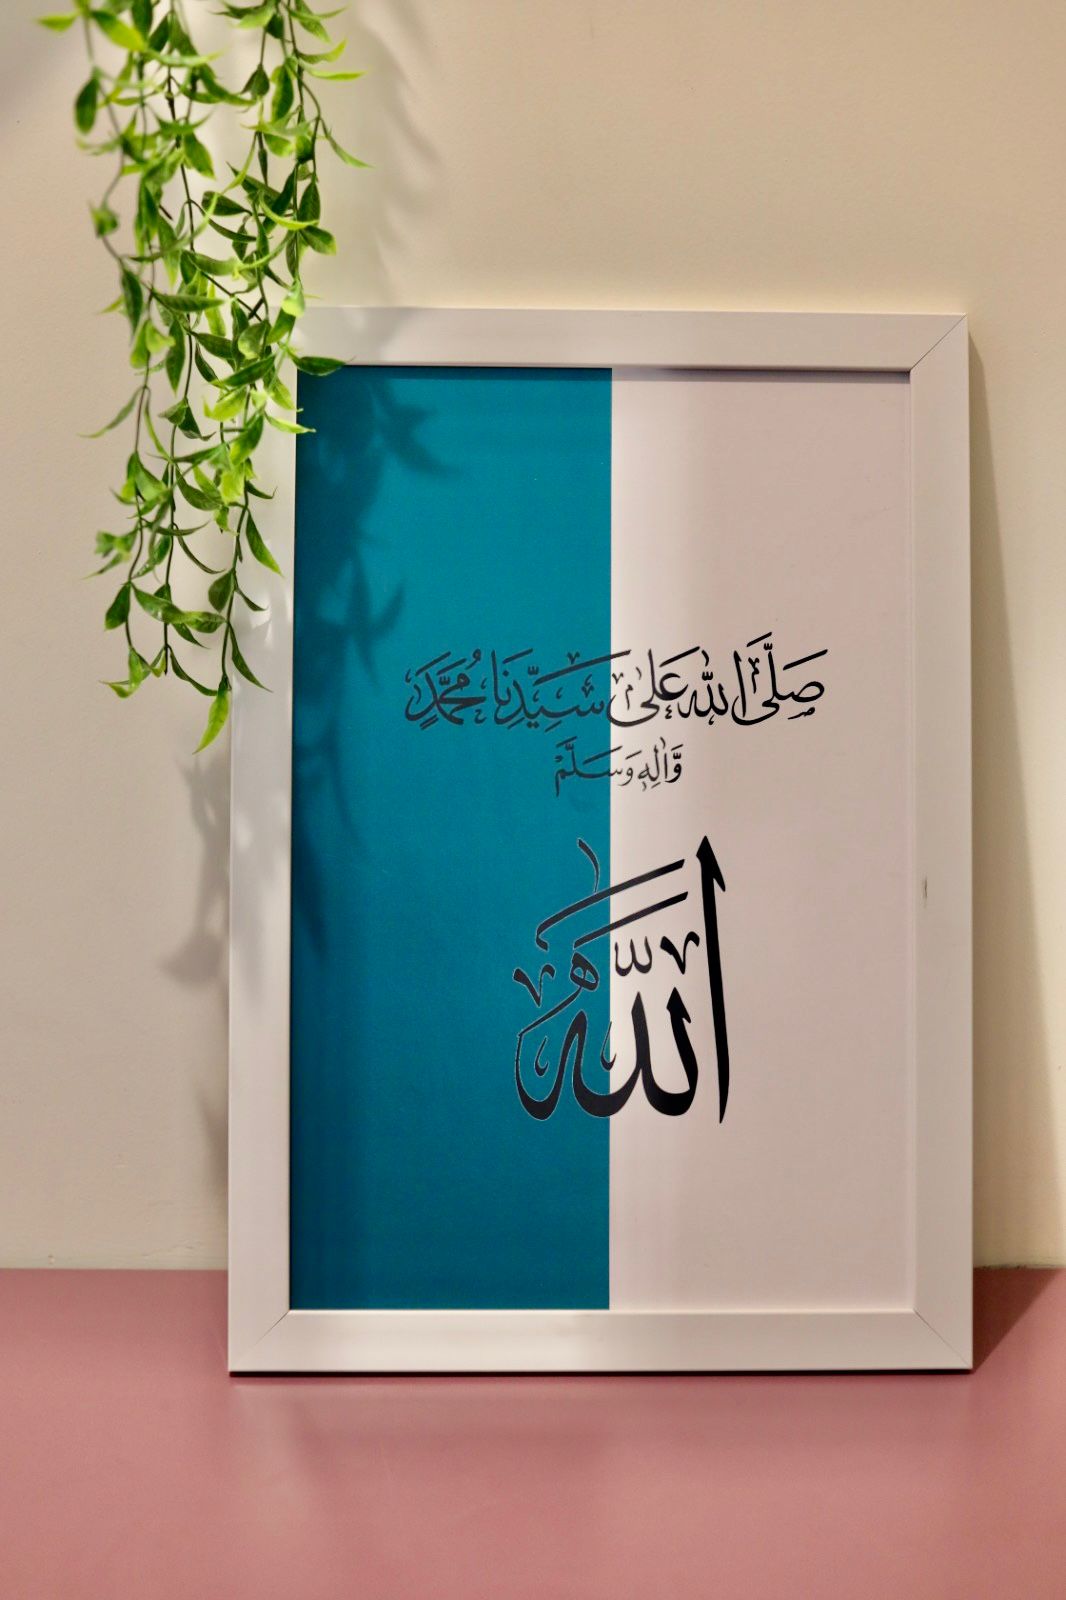 صَلَّى اللّٰه عَلٰى سَيِّدِنَا مُحَمَّدٍ
وَّاٰلِهٖ وَسَلَّمْ
اللّٰهُ